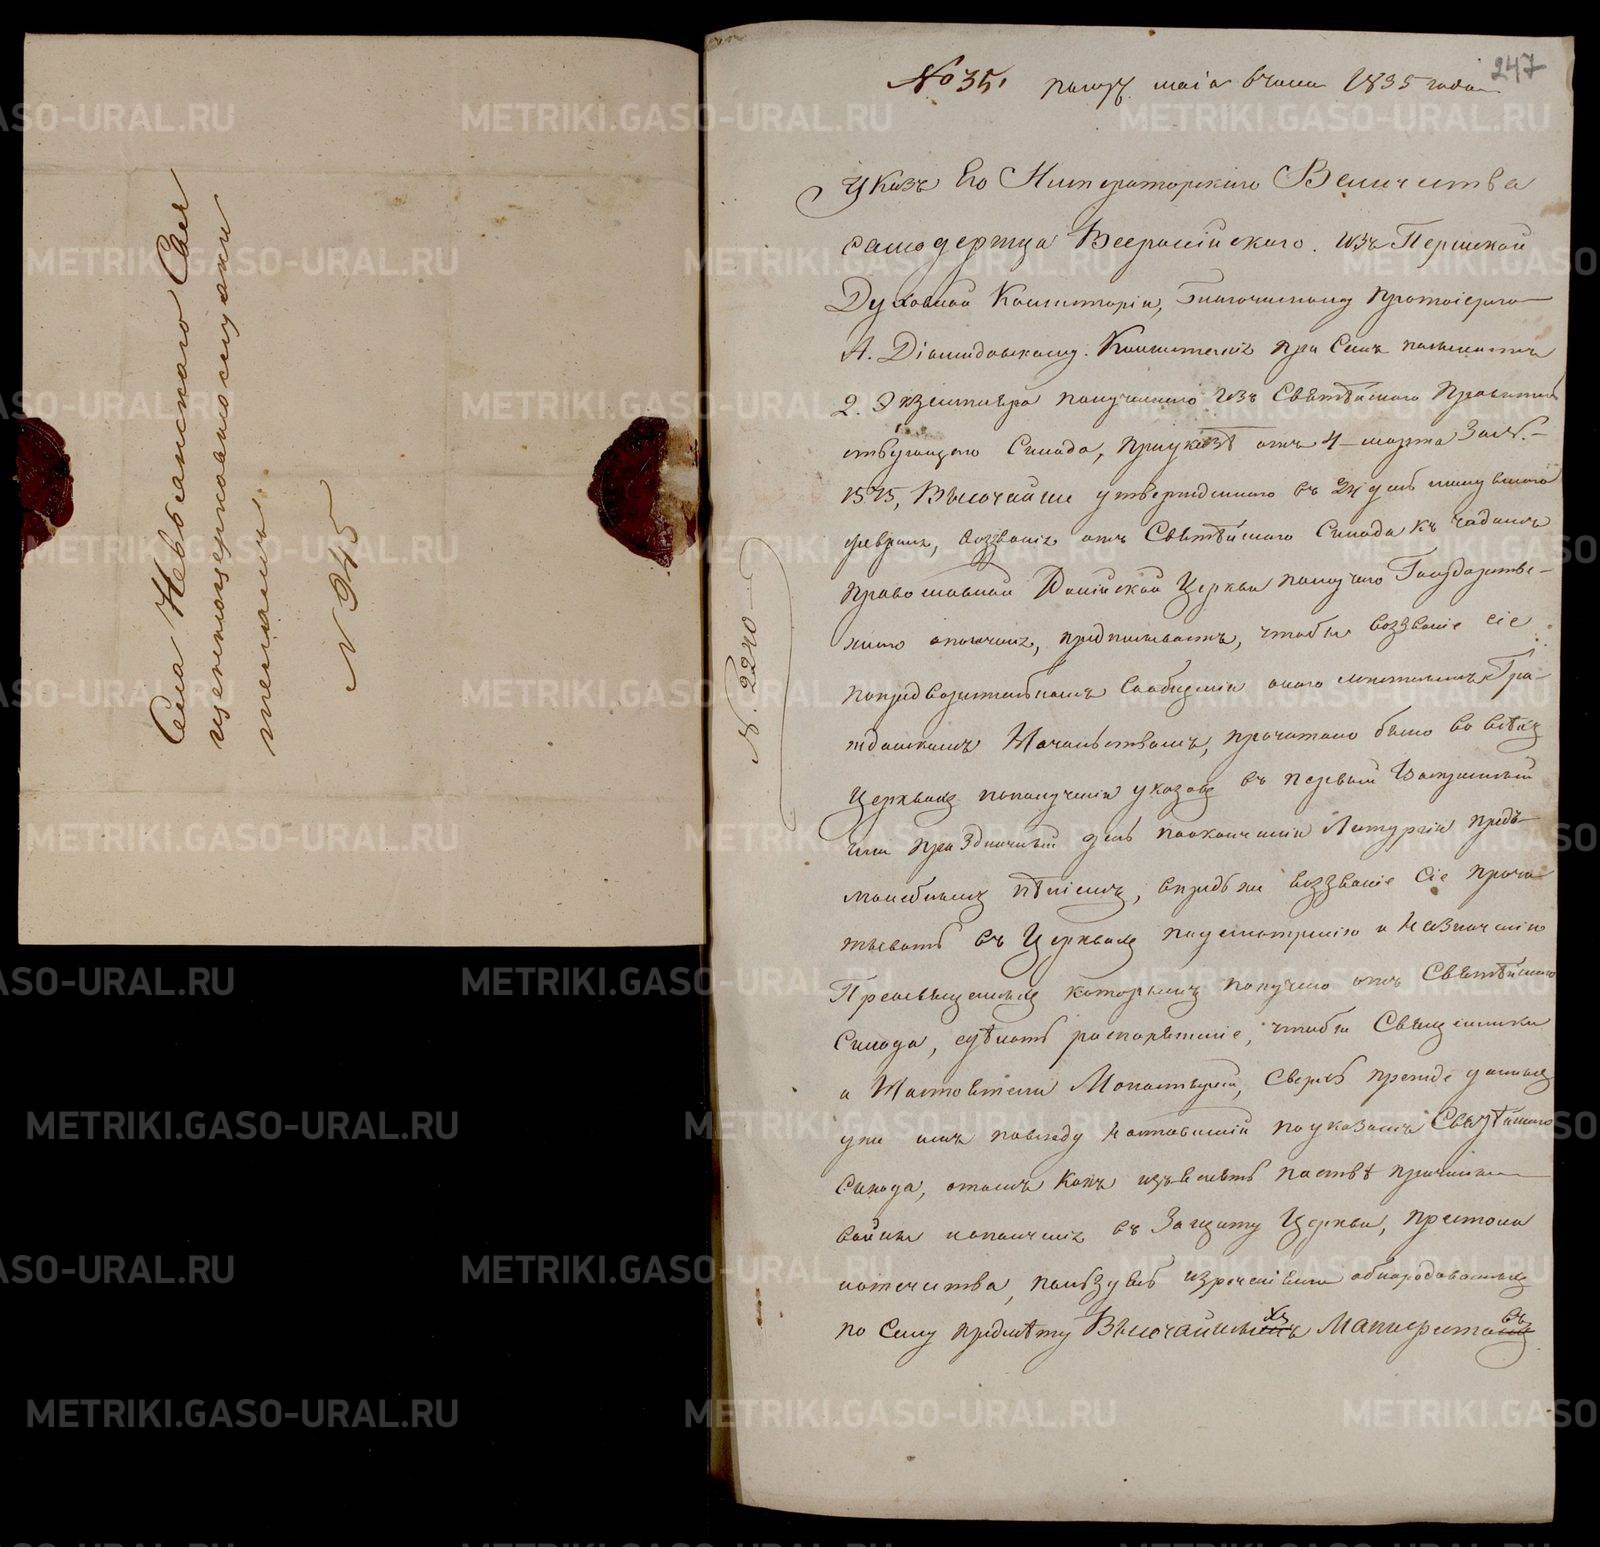 Села Невьянского Свя
щенноцерковнослужи
телямъ
N 945
247
№ 35. получ. маія 6 числа 1855 года
Указъ Его Императорскаго Величества
самодержца Всероссійскаго. изъ Пермской
Духовной Консисторіи, Благочинному Протоіерею
А. Діомидовскому. Консисторія при семъ
2. Экземпляра полученнаго изъ Святѣйшаго Правитель
ствующаго Синода, при указѣ отъ 4 марта за №
1575, Высочайше утвержденнаго въ 24 день минувшаго
февраля, воззванія отъ Святѣйшаго Синода къ чадамъ
православной Россійской Церкви по случаю Государстве-
ннаго ополченія, предписываетъ, чтобы воззваніе сіе
по предварительномъ сообщеніи онаго мѣстнымъ Гра-
жданскимъ Начальствамъ, прочитано было во всѣхъ
Церквахъ по полученіи указовъ въ первый Воскресный
или праздничный день по окончаніи Литургіи предъ
молебнымъ пѣніемъ, впредь же воззваніе сіе прочи
тывать въ Церквахъ по усмотрѣнію и назначенію
Преосвященныхъ которымъ поручено отъ Святѣйшаго
Синода, сдѣлать распоряженіе, чтобы Священники
и Настоятели Монастырей, сверхъ прежде данныхъ
уже имъ по сему наставленій по указамъ Святѣйшаго
Синода, о томъ какъ изъяснять паствѣ причины
войны и ополченія въ защиту Церкви, престола
и отечества, пользуясь изреченіями обнародованныхъ
по сему предмету Высочайшихъ Манифестовъ
N. 2240